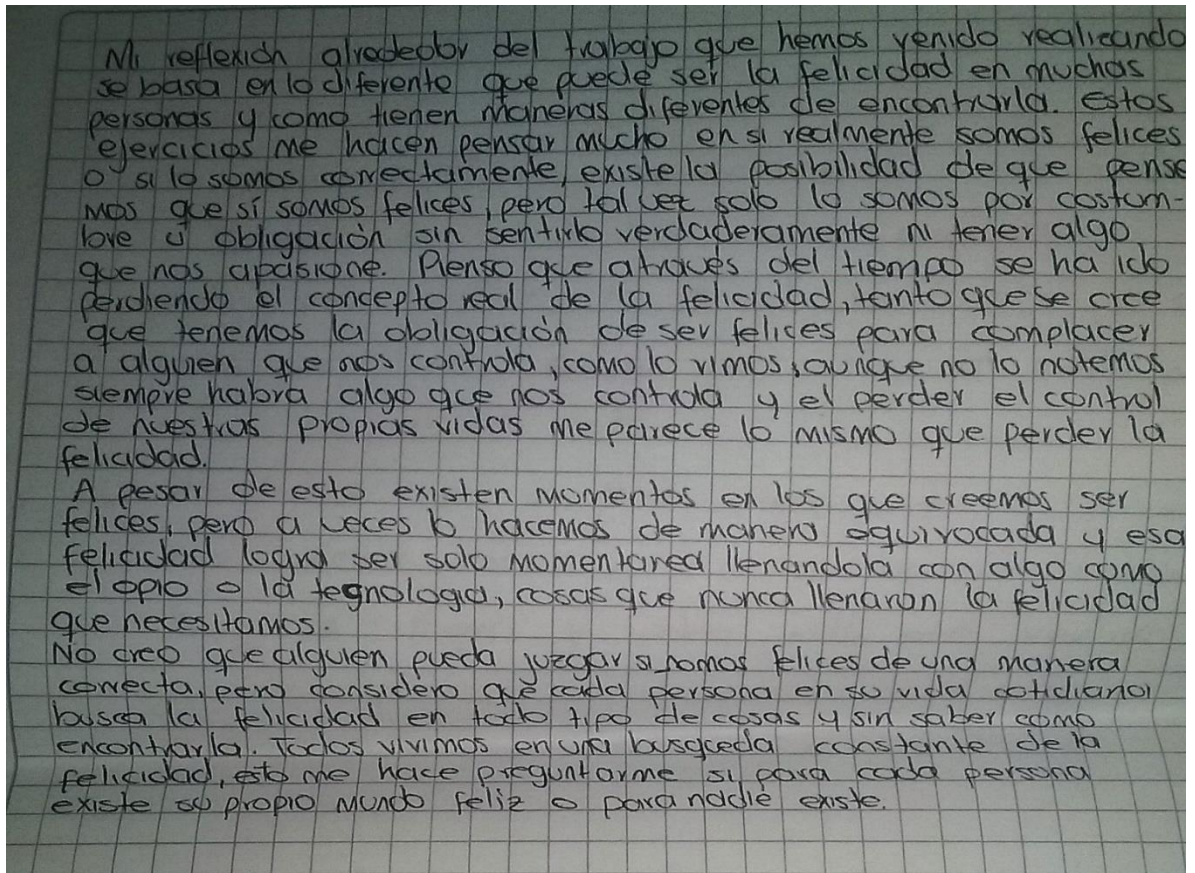 Mi reflexión alrededor del trabajo que hemos venido realizando
se basa en lo diferente que puede ser la felicidad en muchas
personas y como tienen maneras diferentes de encontrarla. Estos
ejercicios me hacen pensar mucho en si realmente somos felices
o si lo somos correctamente, existe la posibilidad de que pense
mos que sí somos felices, pero tal vez solo lo somos por costum-
bre u obligación sin sentirlo verdaderamente ni tener algo
que nos apasione. Pienso que atravès del tiempo se ha ido
perdiendo el concepto real de la felicidad, tanto que se cree
que tenemos la obligación de ser felices para complacer
a alguien que nos controla, como lo vimos, aunque no lo notemos
siempre habra algo que nos controla y el perder el control
de nuestras propias vidas me parece lo mismo que perder la
felicidad.
A pesar de esto existen momentos en los que creemos ser
felices, pero a veces lo hacemos de manera equivocada y esa
felicidad logra ser solo momentarea llenandola con algo como
el opio o la tegnologia, cosas que nunca llenaron la felicidad
que necesitamos.
No creo que alguien pueda juzgar si somos felices de una manera
correcta, pero considero que cada persona en su vida cotidiana
busca la felicidad en todo tipo de cosas y sin saber como
encontrarla. Todos vivimos en una busqueda constante de la
felicidad, esto me hace preguntarme si para cada persona
existe su propio mundo feliz o para nadie existe.